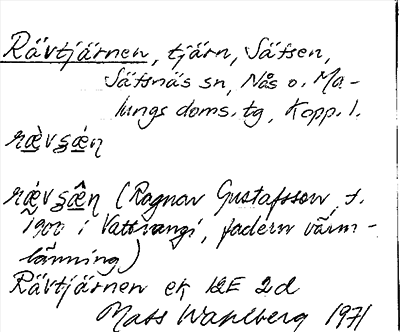 Rävtjärnen, tjärn, Säfsen,
Säfsnäs sn, Nås o. Ma-
lungs doms. tg, Kopp. l.
(Ragnar Gustafsson, f.
1900 i Vattvangi, fadern värm-
länning)
Rävtjärnen ek 12E 2d
Mats Wahlberg 1971